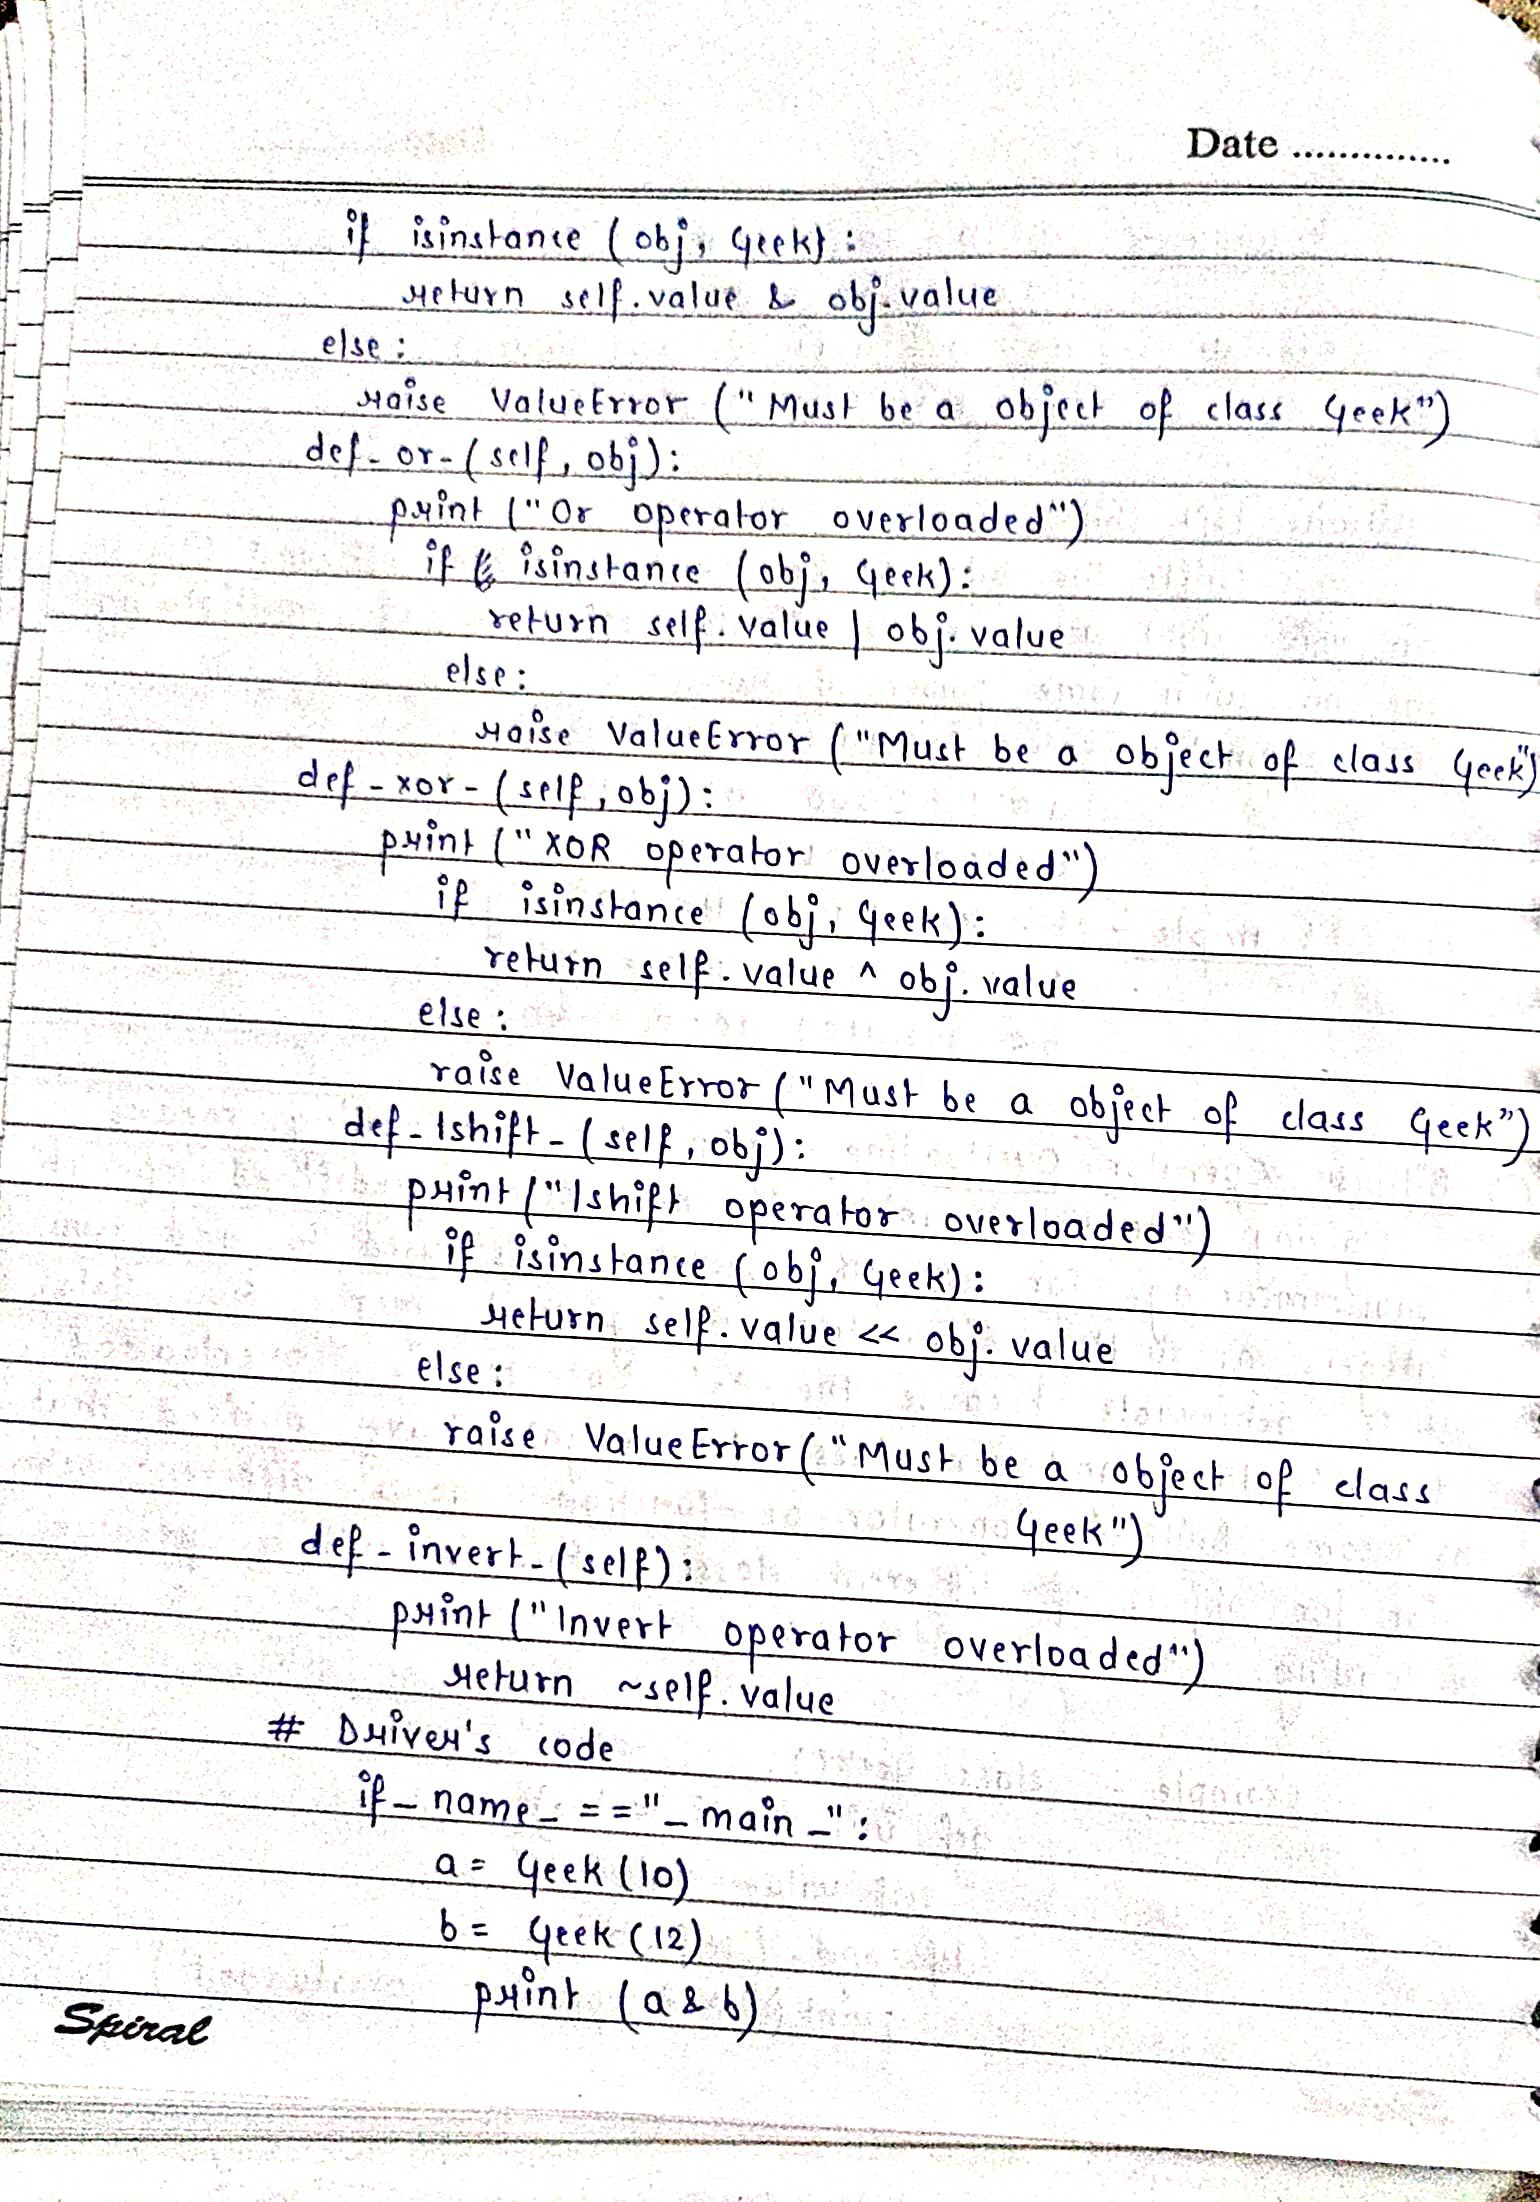 Date ...............
if isinstance (obj, Geek):
return self.value & obj.value
else:
raise ValueError ("Must be a object of class Geek")
def_or_(self, obj):
print ("Or operator overloaded")
if isinstance (obj, Geek):
return self.value | obj.value
else:
raise ValueError ("Must be a object of class Geek")
def_xor_(self, obj):
print ("XOR operator overloaded")
if isinstance (obj, Geek):
return self.value ^ obj.value
else:
raise ValueError ("Must be a object of class Geek")
def_lshift_(self, obj):
print ("lshift operator overloaded")
if isinstance (obj, Geek):
return self.value << obj.value
else:
raise ValueError ("Must be a object of class
Geek")
def_invert_(self):
print ("Invert operator overloaded")
return ~self.value
# Driver's code
if_name_=="_main_":
a= Geek (10)
b= Geek (12)
print (a & b)
Spiral